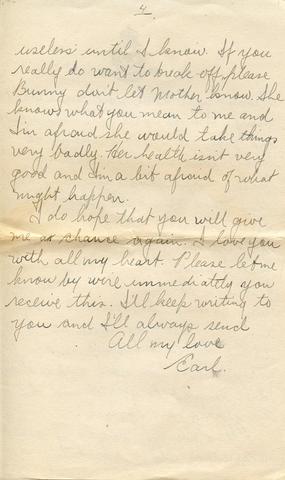 4.
useless until I know. If you
really do want to break off, please
Bunny don't let Mother know. She
knows what you mean to me and
I'm afraid she would take things
very badly. Her health isn't very
good and am a bit afraid of what
might happen.
I do hope that you will give
me a chance again. I love you
with all my heart. Please let me
know by wire immediately you
receive this. I'll keep writing to
you and I'll always send
All my love
Earl.